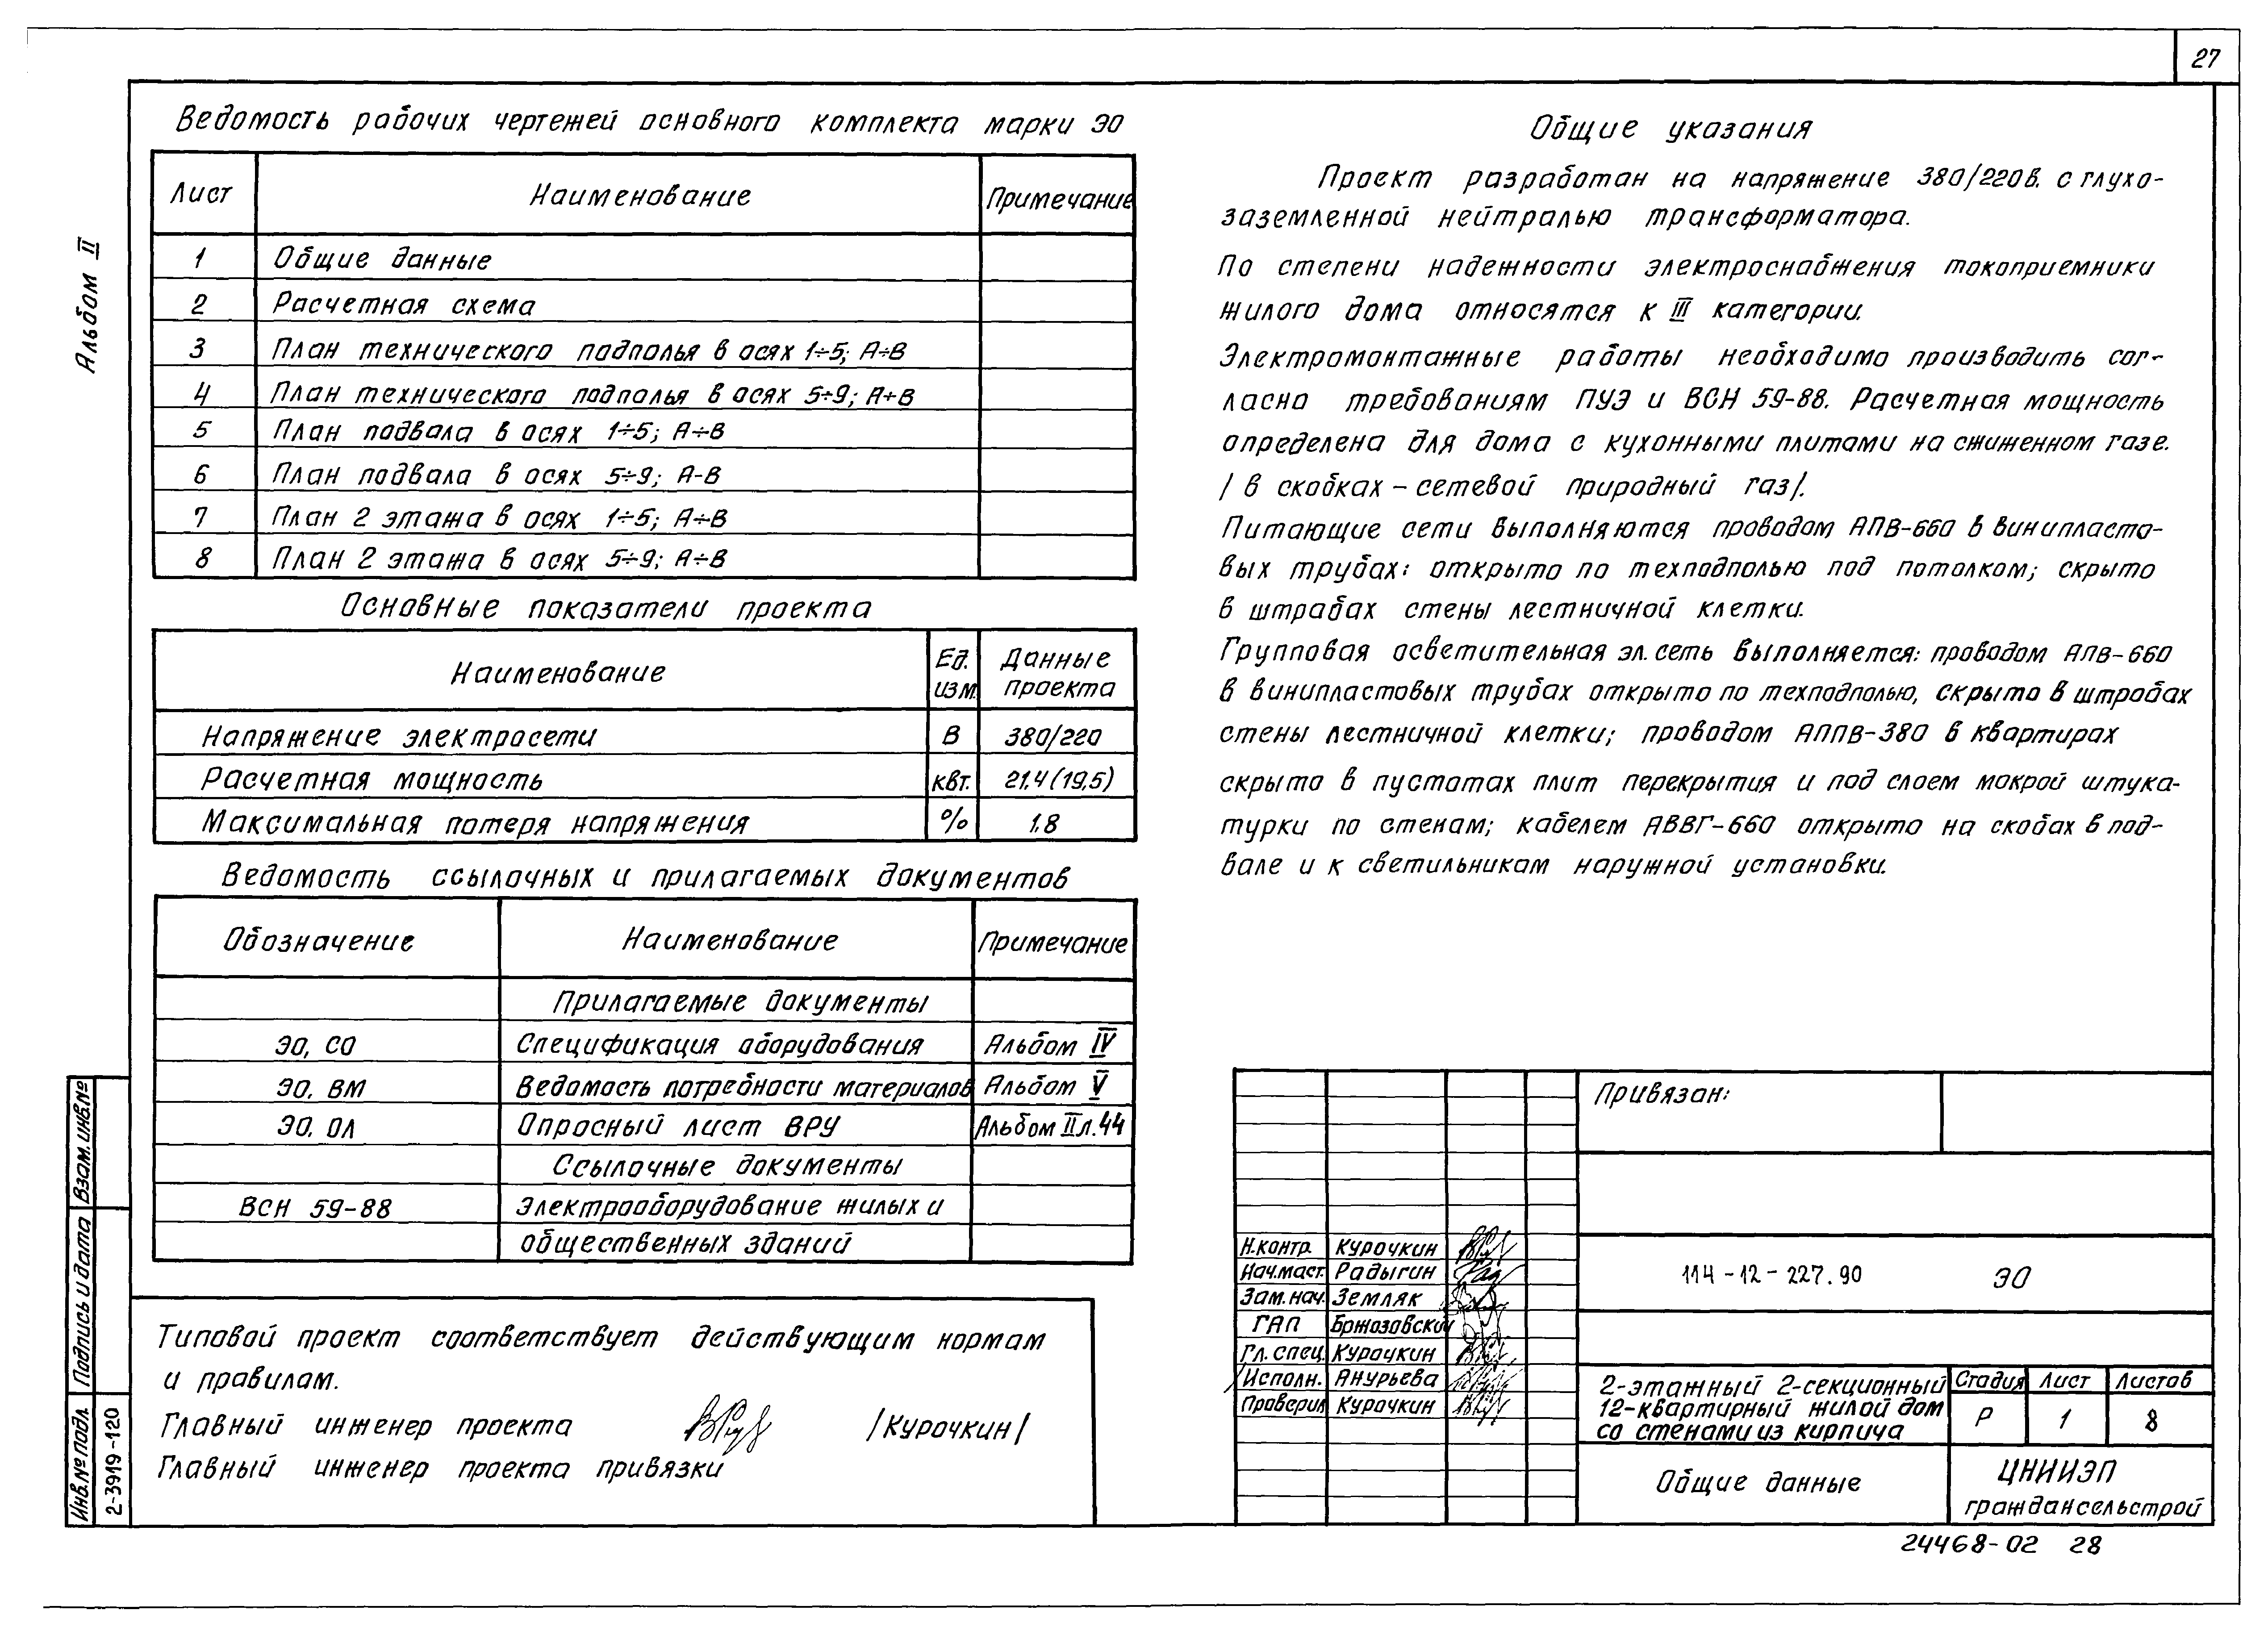 27
Альбом II
Ведомость рабочих чертежей основного комплекта марки ЭО
Лист Наименование Примечание
1 Общие данные
2 Расчетная схема
3 План технического подполья в осях 1÷5; А÷В
4 План технического подполья в осях 5÷9; А÷В
5 План подвала в осях 1÷5; А÷В
6 План подвала в осях 5÷9; А-В
7 План 2 этажа в осях 1÷5; А÷В
8 План 2 этажа в осях 5÷9; А÷В
Основные показатели проекта
Наименование Ед. изм. Данные проекта
Напряжение электросети В 380/220
Расчетная мощность квт. 21,4 (19,5)
Максимальная потеря напряжения % 1,8
Ведомость ссылочных и прилагаемых документов
Обозначение Наименование Примечание
Прилагаемые документы
ЭО, СО Спецификация оборудования Альбом IV
ЭО, ВМ Ведомость потребности материалов Альбом V
ЭО, ОЛ Опросный лист ВРУ Альбом II л.44
Ссылочные документы
ВСН 59-88 Электрооборудование жилых и
общественных зданий
Типовой проект соответствует действующим нормам
и правилам.
Главный инженер проекта /Курочкин/
Главный инженер проекта привязки
Общие указания
Проект разработан на напряжение 380/220в. с глухо-
заземленной нейтралью трансформатора.
По степени надежности электроснабжения токоприемники
жилого дома относятся к III категории.
Электромонтажные работы необходимо производить сог-
ласно требованиям ПУЭ и ВСН 59-88. Расчетная мощность
определена для дома с кухонными плитами на сжиженном газе.
/ в скобках – сетевой природный газ/.
Питающие сети выполняются проводом АПВ-660 в винипласто-
вых трубах: открыто по техподполью под потолком; скрыто
в штрабах стены лестничной клетки.
Групповая осветительная эл. сеть выполняется: проводом АПВ-660
в винипластовых трубах открыто по техподполью, скрыто в штрабах
стены лестничной клетки; проводом АППВ-380 в квартирах
скрыто в пустотах плит перекрытия и под слоем мокрой штука-
турки по стенам; кабелем АВВГ-660 открыто на скобах в под-
вале и к светильникам наружной установки.
Привязан:
Н.контр. Курочкин
Нач.маст. Радыгин
Зам.нач. Земляк
ГАП Бржозовский
Гл. спец. Курочкин
Исполн. Анурьева
Проверил Курочкин
114-12-227.90 ЭО
2-этажный 2-секционный
12-квартирный жилой дом
со стенами из кирпича
Стадия Лист Листов
Р 1 8
Общие данные
ЦНИИЭП
граждансельстрой
24468-02 28
Взам. инв.№
Подпись и дата
Инв.№ подл.
2-3919-120